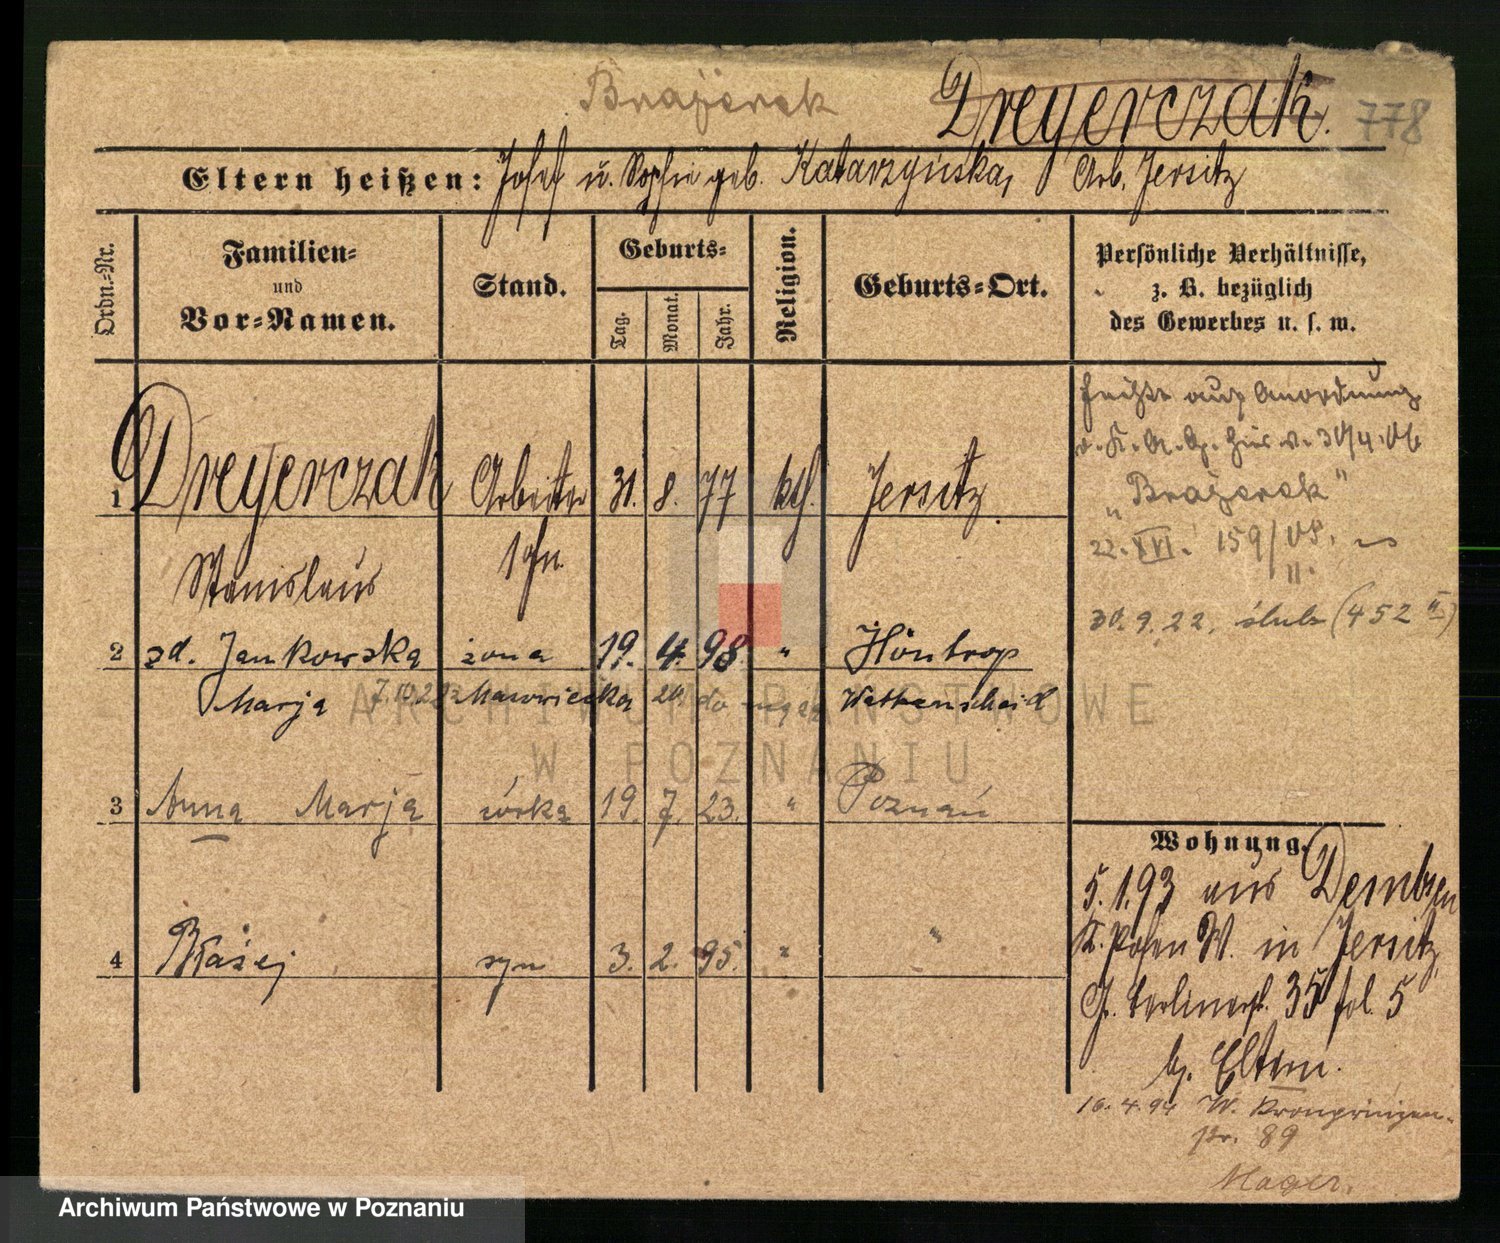 Brajerek Dreyerczak. 778
Eltern heißen: Josef u. Sophie geb. Katarzyńska, Arb. Jersitz
Ordn.-Nr.
Familien-
und
Vor-Namen.
Stand.
Geburts-
Tag. Monat. Jahr.
Religion.
Geburts-Ort.
Persönliche Verhältnisse,
z. B. bezüglich
des Gewerbes u. s. w.
1 Dreyerczak Arbeiter 31. 8. 77 kth. Jersitz
Stanislaus
2 zd. Jankowska żona 19. 4. 98. " Höntrop
Marja 7.10.22 Mazowiecka Wattenscheid
3 Anna Marja córka 19. 7. 23. " Poznań
4 Błażej syn 3. 2. 95. " "
auf Anordnung
v. 30/4.06
„Brajerek"
22. XVI. 159/05.
II.
30.9.22. ślub (452 II)
Wohnung.
5.1.93 aus Dembsen
K. Posen W. in Jersitz,
Gr. Berlinerst. 35 fol. 5
bg. Eltern.
16.4.94 W. Kronprinzen-
str. 89
Mager.
ARCHIWUM PAŃSTWOWE
W POZNANIU
Archiwum Państwowe w Poznaniu